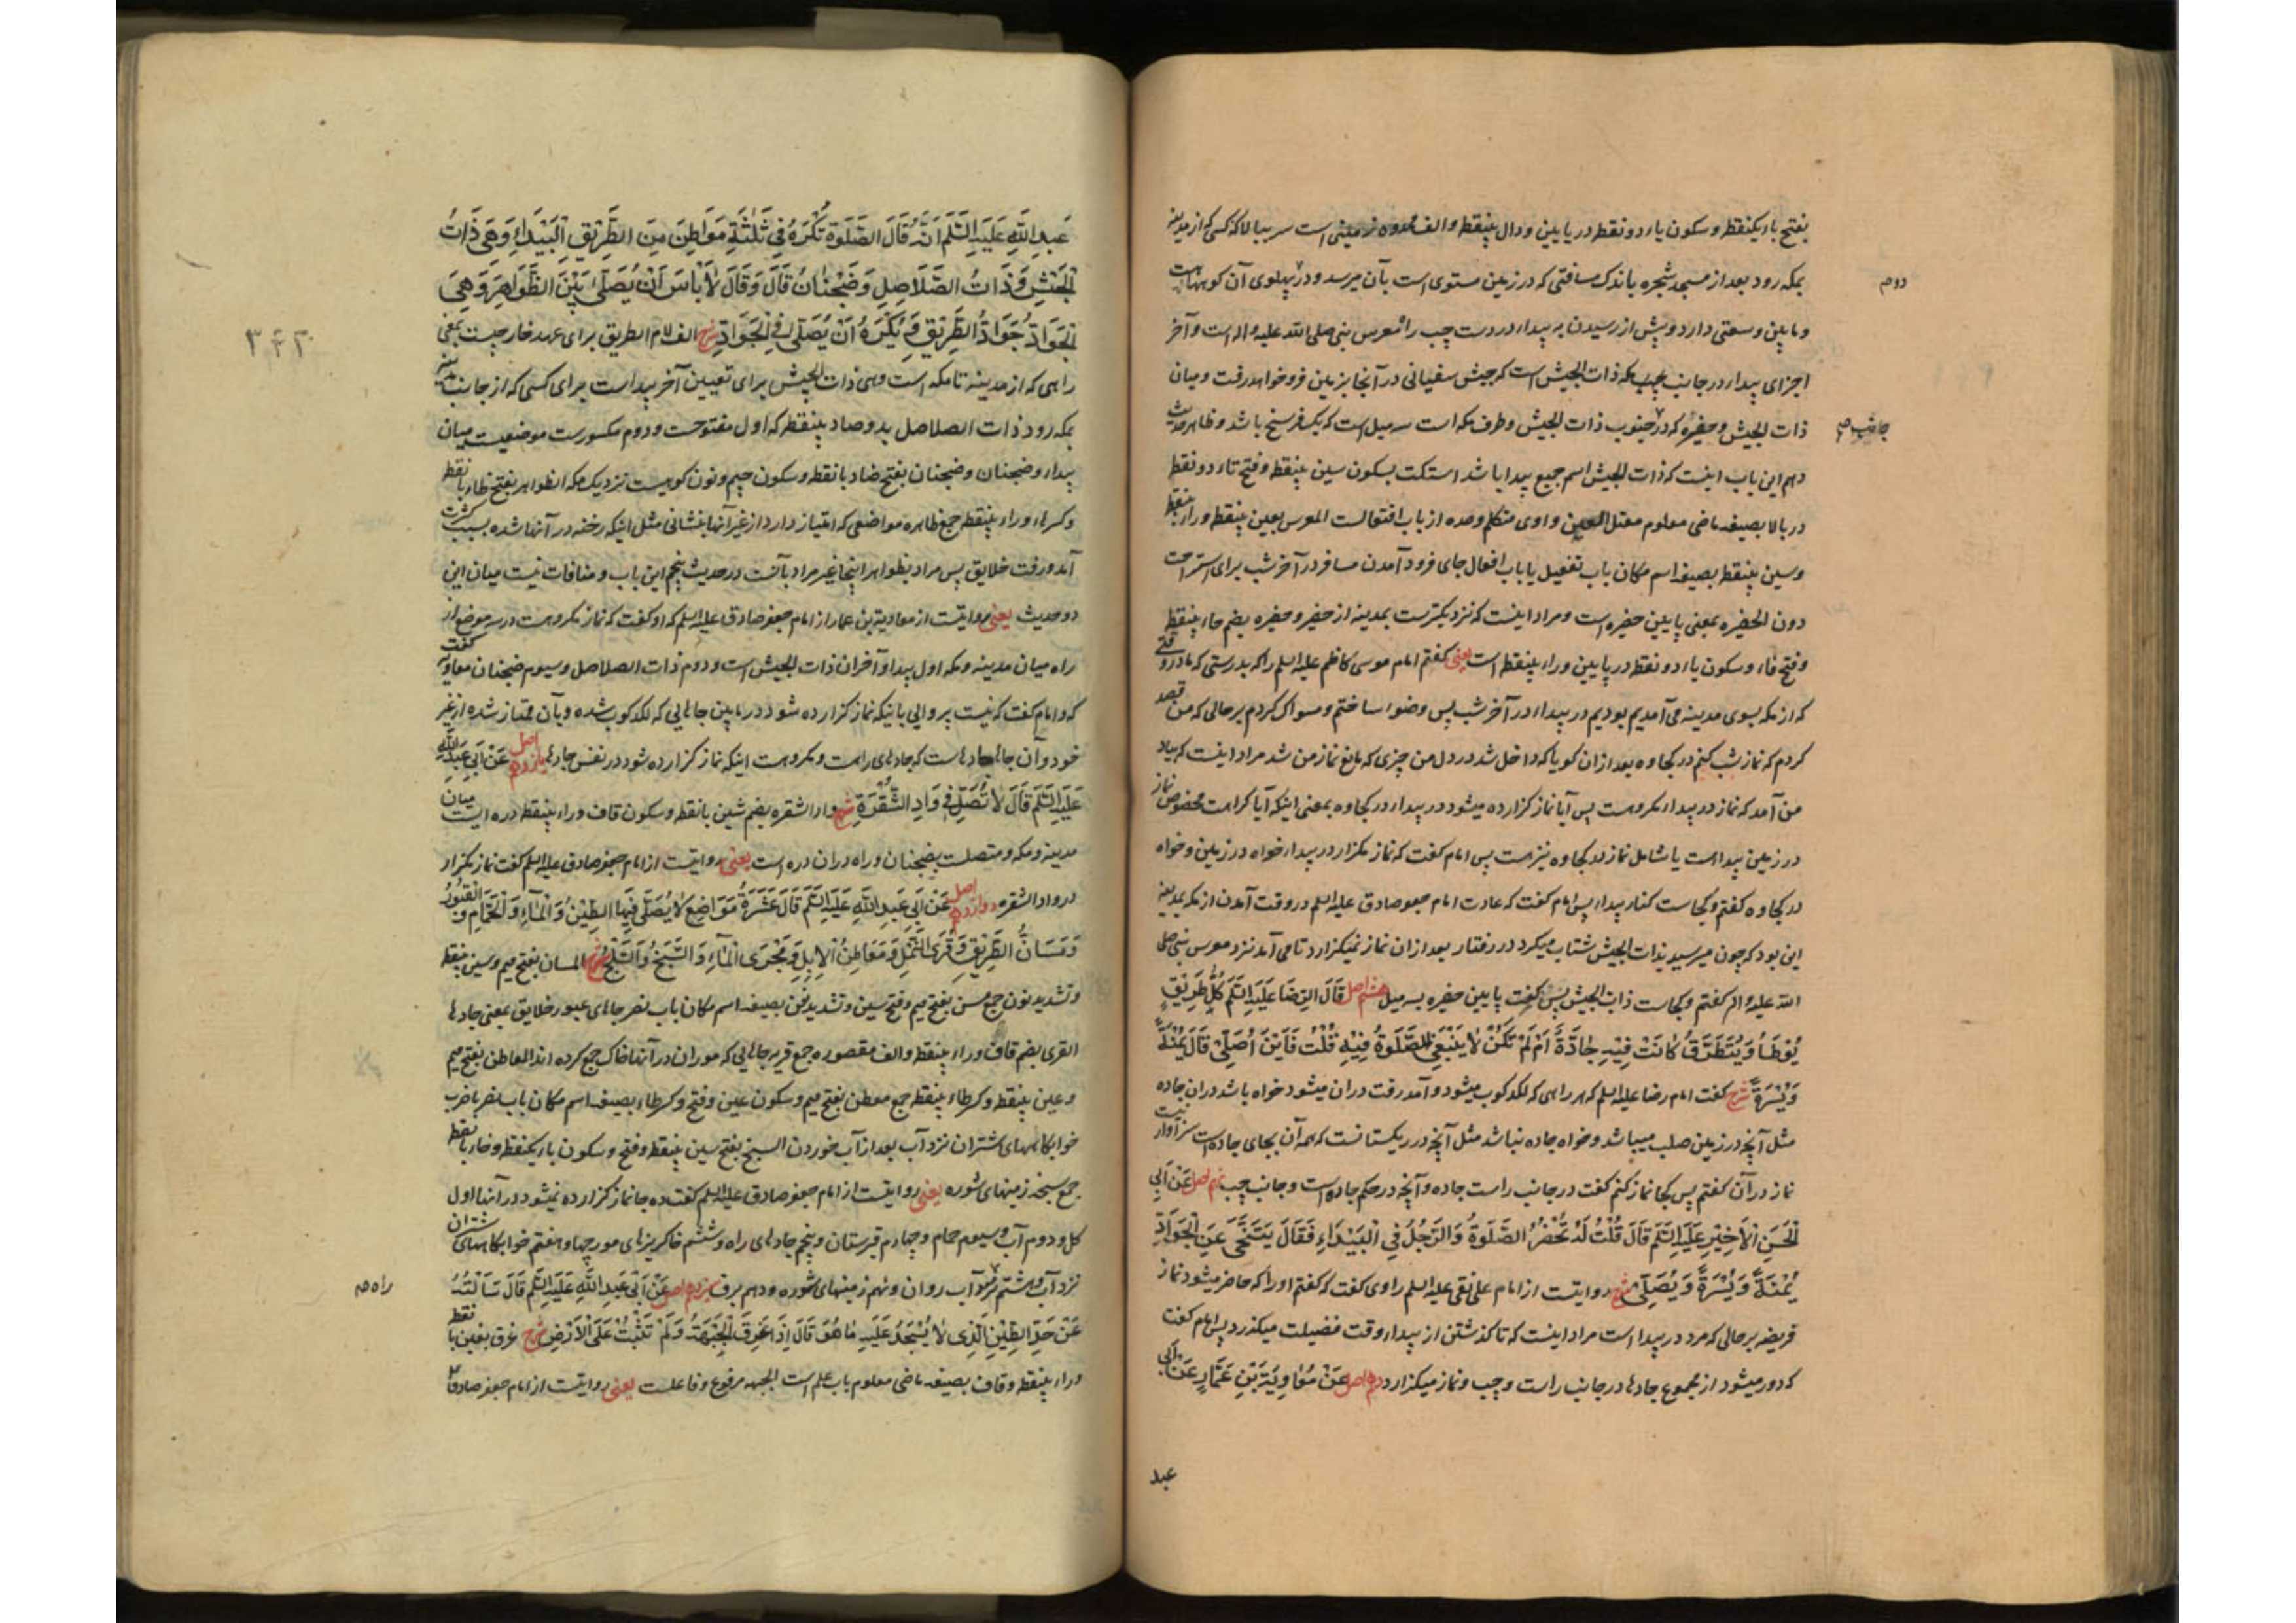 بفتح باء یکنقطه و سکون یاء دو نقطه در پایین و دال بینقطه و الف ممدوده زمینی است سربالا که کسی که از مدینه
بمکه رود بعد از مسجد شجره باندک مسافتی که در زمین مستوی است بآن میرسد و در پهلوی آن کوههاست
دوم
و مابین وسعتی دارد و پیش از رسیدن به بیداء در دست چپ راه معرس نبی صلی الله علیه و اله است و آخر
اجزای بیداء در جانب چپ مکه ذات الجیش است که جیش سفیانی در آنجا بزمین فرو خواهد رفت و میان
ذات الجیش و حفیره که در جنوب ذات الجیش و طرف مکه است سه میل است که یک فرسخ باشد و ظاهر حدیث
جانب صح
دهم این باب اینست که ذات الجیش اسم جمیع بیدا باشد استکت بسکون سین بینقطه و فتح تاء دو نقطه
در بالا بصیغه ماضی معلوم معتل العین واوی متکلم وحده از باب افتعالست المعرس بعین بینقطه و راء بینقطه
و سین بینقطه بصیغه اسم مکان باب تفعیل یا باب افعال جای فرود آمدن مسافر در آخر شب برای استراحت
دون الحفیره بمعنی پایین حفیره است و مراد اینست که نزدیکترست بمدینه از حفیر و حفیره بضم حاء بینقطه
و فتح فاء و سکون یاء دو نقطه در پایین و راء بینقطه است یعنی گفتم امام موسی کاظم علیه السلم را که بدرستی که ما در وقتی
که از مکه بسوی مدینه می آمدیم بودیم در بیداء در آخر شب پس وضو ساختم و مسواک کردم بر حالی که من قصد
کردم که نماز شب کنم در کجاوه بعد از ان گویا که داخل شد در دل من چیزی که مانع نماز من شد مراد اینست که بیاد
من آمد که نماز در بیداء مکروهست پس آیا نماز گزارده میشود در بیداء در کجاوه بمعنی اینکه آیا کراهت مخصوص نماز
در زمین بیداست یا شامل نماز در کجاوه نیز هست پس امام گفت که نماز مگزار در بیداء خواه در زمین و خواه
در کجاوه گفتم و کجاست کنار بیداء پس امام گفت که عادت امام جعفر صادق علیه السلم در وقت آمدن از مکه بمدینه
این بود که چون میرسید بذات الجیش شتاب میکرد در رفتار بعد از ان نماز نمیگزارد تا می آمد نزد معرس نبی صلی
الله علیه و اله گفتم و کجاست ذات الجیش پس گفت پایین حفیره بسه میل هشتم اصل قَالَ الرِّضَا عَلَیْهِ السَّلَم کُلُّ طَرِیْقٍ
یُوْطَأُ وَ یُتَطَرَّقُ کَانَتْ فِیْهِ جَادَّةٌ أَمْ لَمْ تَکُنْ لَا یَنْبَغِی الصَّلٰوةُ فِیْهِ قُلْتُ فَأَیْنَ أُصَلِّیْ قَالَ یَمْنَةً
وَ یَسْرَةً شرح گفت امام رضا علیه السلم که هر راهی که لگدکوب میشود و آمد رفت در ان میشود خواه باشد در ان جاده
مثل آنچه در زمین صلب میباشد و خواه جاده نباشد مثل آنچه در ریگستانست که همه آن بجای جاده است سزاوار نیست
نماز در آن گفتم پس کجا نماز کنم گفت در جانب راست جاده و آنچه در حکم جاده است و جانب چپ نهم اصل عَنْ أَبِی
الْحَسَنِ الْأَخِیْرِ عَلَیْهِ السَّلَم قَالَ قُلْتُ لَهُ تَحْضُرُ الصَّلٰوةُ وَ الرَّجُلُ فِی الْبَیْدَاءِ فَقَالَ یَتَنَحَّی عَنِ الْجَوَادِّ
یَمْنَةً وَ یَسْرَةً وَ یُصَلِّی شرح روایتست از امام علی نقی علیه السلم راوی گفت که گفتم او را که حاضر میشود نماز
فریضه بر حالی که مرد در بیدا است مراد اینست که تا گذشتن از بیداء وقت فضیلت میگذرد پس امام گفت
که دور میشود از مجموع جاده‌ها در جانب راست و چپ و نماز میگزارد دهم اصل عَنْ مُعَاوِیَةَ بْنِ عَمَّارٍ عَنْ أَبِی
عبد
عَبْدِ اللَّهِ عَلَیْهِ السَّلَم أَنَّهُ قَالَ الصَّلٰوةُ تُکْرَهُ فِیْ ثَلٰثَةِ مَوَاطِنَ مِنَ الطَّرِیْقِ الْبَیْدَاءِ وَ هِیَ ذَاتُ
الْجَیْشِ وَ ذَاتُ الصَّلَاصِلِ وَ ضَجْنَانُ قَالَ وَ قَالَ لَا بَأْسَ أَنْ یُصَلَّی بَیْنَ الظَّوَاهِرِ وَ هِیَ
الْجَوَادُّ جَوَادُّ الطَّرِیْقِ وَ یُکْرَهُ أَنْ یُصَلَّی فِی الْجَوَادِّ شرح الف لام الطریق برای عهد خارجیست بمعنی
۳۴۲
راهی که از مدینه تا مکه است و هی ذات الجیش برای تعیین آخر بیداست برای کسی که از جانب مدینه
بمکه رود ذات الصلاصل بدو صاد بینقطه که اول مفتوحست و دوم مکسورست موضعیست میان
بیداء و ضجنان و ضجنان بفتح ضاد بانقطه و سکون جیم و نون کوهیست نزدیک مکه الظواهر بفتح ظاء بانقطه
و کسر هاء و راء بینقطه جمع ظاهره مواضعی که امتیاز دارد از غیر آنها بنشانی مثل اینکه رخنه در آنها شده بسبب کثرت
آمد و رفت خلایق پس مراد بظواهر اینجا غیر مراد بآنست در حدیث پنجم این باب و منافات نیست میان این
دو حدیث یعنی روایتست از معاویة بن عمار از امام جعفر صادق علیه السلم که او گفت که نماز مکروهست در سه موضع از
راه میان مدینه و مکه اول بیدا و آخر ان ذات الجیش است و دوم ذات الصلاصل و سیوم ضجنان معاویه گفت
که و امام گفت که نیست پروائی باینکه نماز گزارده شود در مابین جاهایی که لگدکوب شده و بآن ممتاز شده از غیر
خود و آن جاها جاده‌هاست که جاده‌های راهست و مکروهست اینکه نماز گزارده شود در نفس جاده‌ها یازدهم اصل عَنْ أَبِی عَبْدِ اللَّهِ
عَلَیْهِ السَّلَم قَالَ لَا تُصَلِّ فِیْ وَادِ الشُّقْرَةِ شرح واد الشقره بضم شین بانقطه و سکون قاف و راء بینقطه دره ایست میان
مدینه و مکه و متصلست بضجنان و راه در ان دره است یعنی روایتست از امام جعفر صادق علیه السلم گفت نماز مگزار
در واد الشقره دوازدهم اصل عَنْ أَبِی عَبْدِ اللَّهِ عَلَیْهِ السَّلَم قَالَ عَشَرَةُ مَوَاضِعَ لَا یُصَلَّی فِیْهَا الطِّیْنُ وَ الْمَاءُ وَ الْحَمَّامُ وَ الْقُبُوْرُ
وَ مَسَانُّ الطَّرِیْقِ وَ قُرَی النَّمْلِ وَ مَعَاطِنُ الْإِبِلِ وَ مَجْرَی الْمَاءِ وَ السَّبَخُ وَ الثَّلْجُ شرح المسان بفتح میم و سین بینقطه
و تشدید نون جمع مسن بفتح میم و فتح سین و تشدید نون بصیغه اسم مکان باب نصر جاهای عبور خلایق بمعنی جاده‌ها
القری بضم قاف و راء بینقطه و الف مقصوره جمع قریه جاهایی که موران در آنها خاک جمع کرده اند المعاطن بفتح میم
و عین بینقطه و کسر طاء بینقطه جمع معطن بفتح میم و سکون عین و فتح و کسر طاء بصیغه اسم مکان باب نصر یا ضرب
خوابگاههای شتران نزد آب بعد از آب خوردن السبخ بفتح سین بینقطه و فتح و سکون باء یکنقطه و خاء بانقطه
جمع سبخه زمینهای شوره یعنی روایتست از امام جعفر صادق علیه السلم گفت ده جا نماز گزارده نمیشود در آنها اول
گل و دوم آب و سیوم حمام و چهارم قبرستان و پنجم جاده‌های راه و ششم خاکریزهای مورچها و هفتم خوابگاههای شتران
نزد آب و هشتم راه آب روان و نهم زمینهای شوره و دهم برف سیزدهم اصل عَنْ أَبِی عَبْدِ اللَّهِ عَلَیْهِ السَّلَم قَالَ سَأَلْتُهُ
راه صح
عَنْ حَدِّ الطِّیْنِ الَّذِی لَا یُسْجَدُ عَلَیْهِ مَا هُوَ قَالَ إِذَا غَرِقَ الْجَبْهَةُ وَ لَمْ تَثْبُتْ عَلَی الْأَرْضِ شرح غرق بغین بانقطه
و راء بینقطه و قاف بصیغه ماضی معلوم باب علم است الجبهه مرفوع و فاعلست یعنی روایتست از امام جعفر صادق